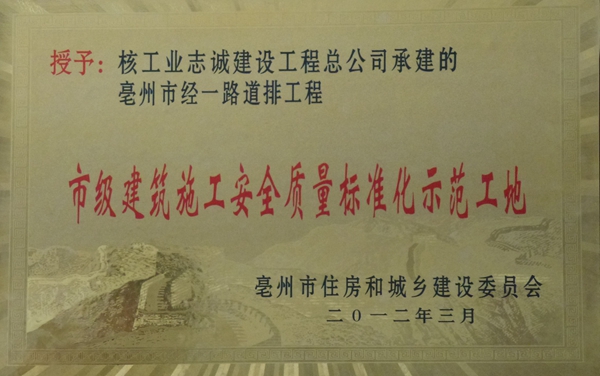 授予：核工业志诚建设工程总公司承建的
亳州市经一路道排工程
市级建筑施工安全质量标准化示范工地
亳州市住房和城乡建设委员会
二〇一二年三月